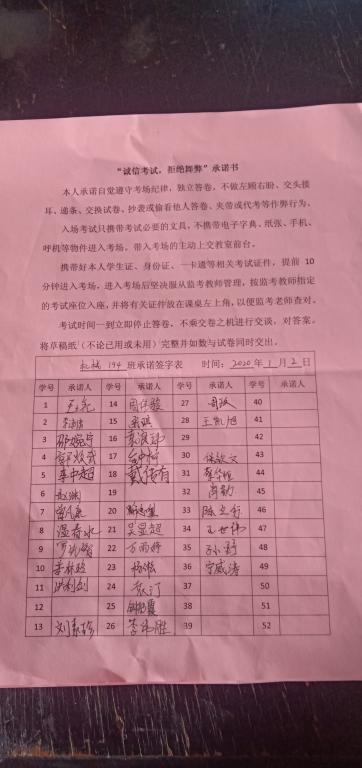 “诚信考试，拒绝舞弊”承诺书
本人承诺自觉遵守考场纪律，独立答卷，不做左顾右盼、交头接
耳、递条、交换试卷、抄袭或偷看他人答卷、夹带或代考等作弊行为。
入场考试只携带考试必要的文具，不携带电子字典、纸张、手机、
呼机等物件进入考场，带入考场的主动上交教室前台。
携带好本人学生证、身份证、一卡通等相关考试证件，提前 10
分钟进入考场，进入考场后坚决服从监考教师管理，按监考教师指定
的考试座位入座，并将有关证件放在课桌左上角，以便监考老师查对。
考试时间一到立即停止答卷，不乘交卷之机进行交谈，对答案。
将草稿纸（不论已用或未用）完整并如数与试卷同时交出。
机械 194 班承诺签字表 时间：2020 年 1 月 2 日
学号 承诺人 学号 承诺人 学号 承诺人 学号 承诺人
1 14 27 40
2 15 28 王凯旭 41
3 16 29 42
4 17 30 43
5 李中超 18 戴传有 31 44
6 19 32 肖勤 45
7 20 33 46
8 温春水 21 吴显超 34 王世伟 47
9 22 万雨婷 35 孙野 48
10 23 杨浩 36 宁威涛 49
11 洪利剑 24 袁汀 37 50
12 25 38 51
13 刘素珍 26 39 52